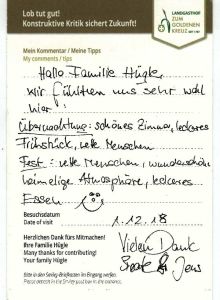 Lob tut gut!
Konstruktive Kritik sichert Zukunft!
LANDGASTHOF
ZUM
GOLDENEN
KREUZ
Mein Kommentar / Meine Tipps
My comments / tips
Hallo Familie Hügle,
wir fühlten uns sehr wohl
hier
Übernachtung: schönes Zimmer, leckeres
Frühstück, nette Menschen
Fest: nette Menschen, wunderschön
heimelige Atmosphäre, leckeres
Essen
Besuchsdatum
Date of visit
1.12.18
Herzlichen Dank fürs Mitmachen!
Ihre Familie Hügle
Many thanks for contributing!
Your family Hügle
Vielen Dank
Beate & Jens
Bitte in den Seelig-Briefkasten im Eingang werfen.
Please deposit in the Seelig post box in the entrance.